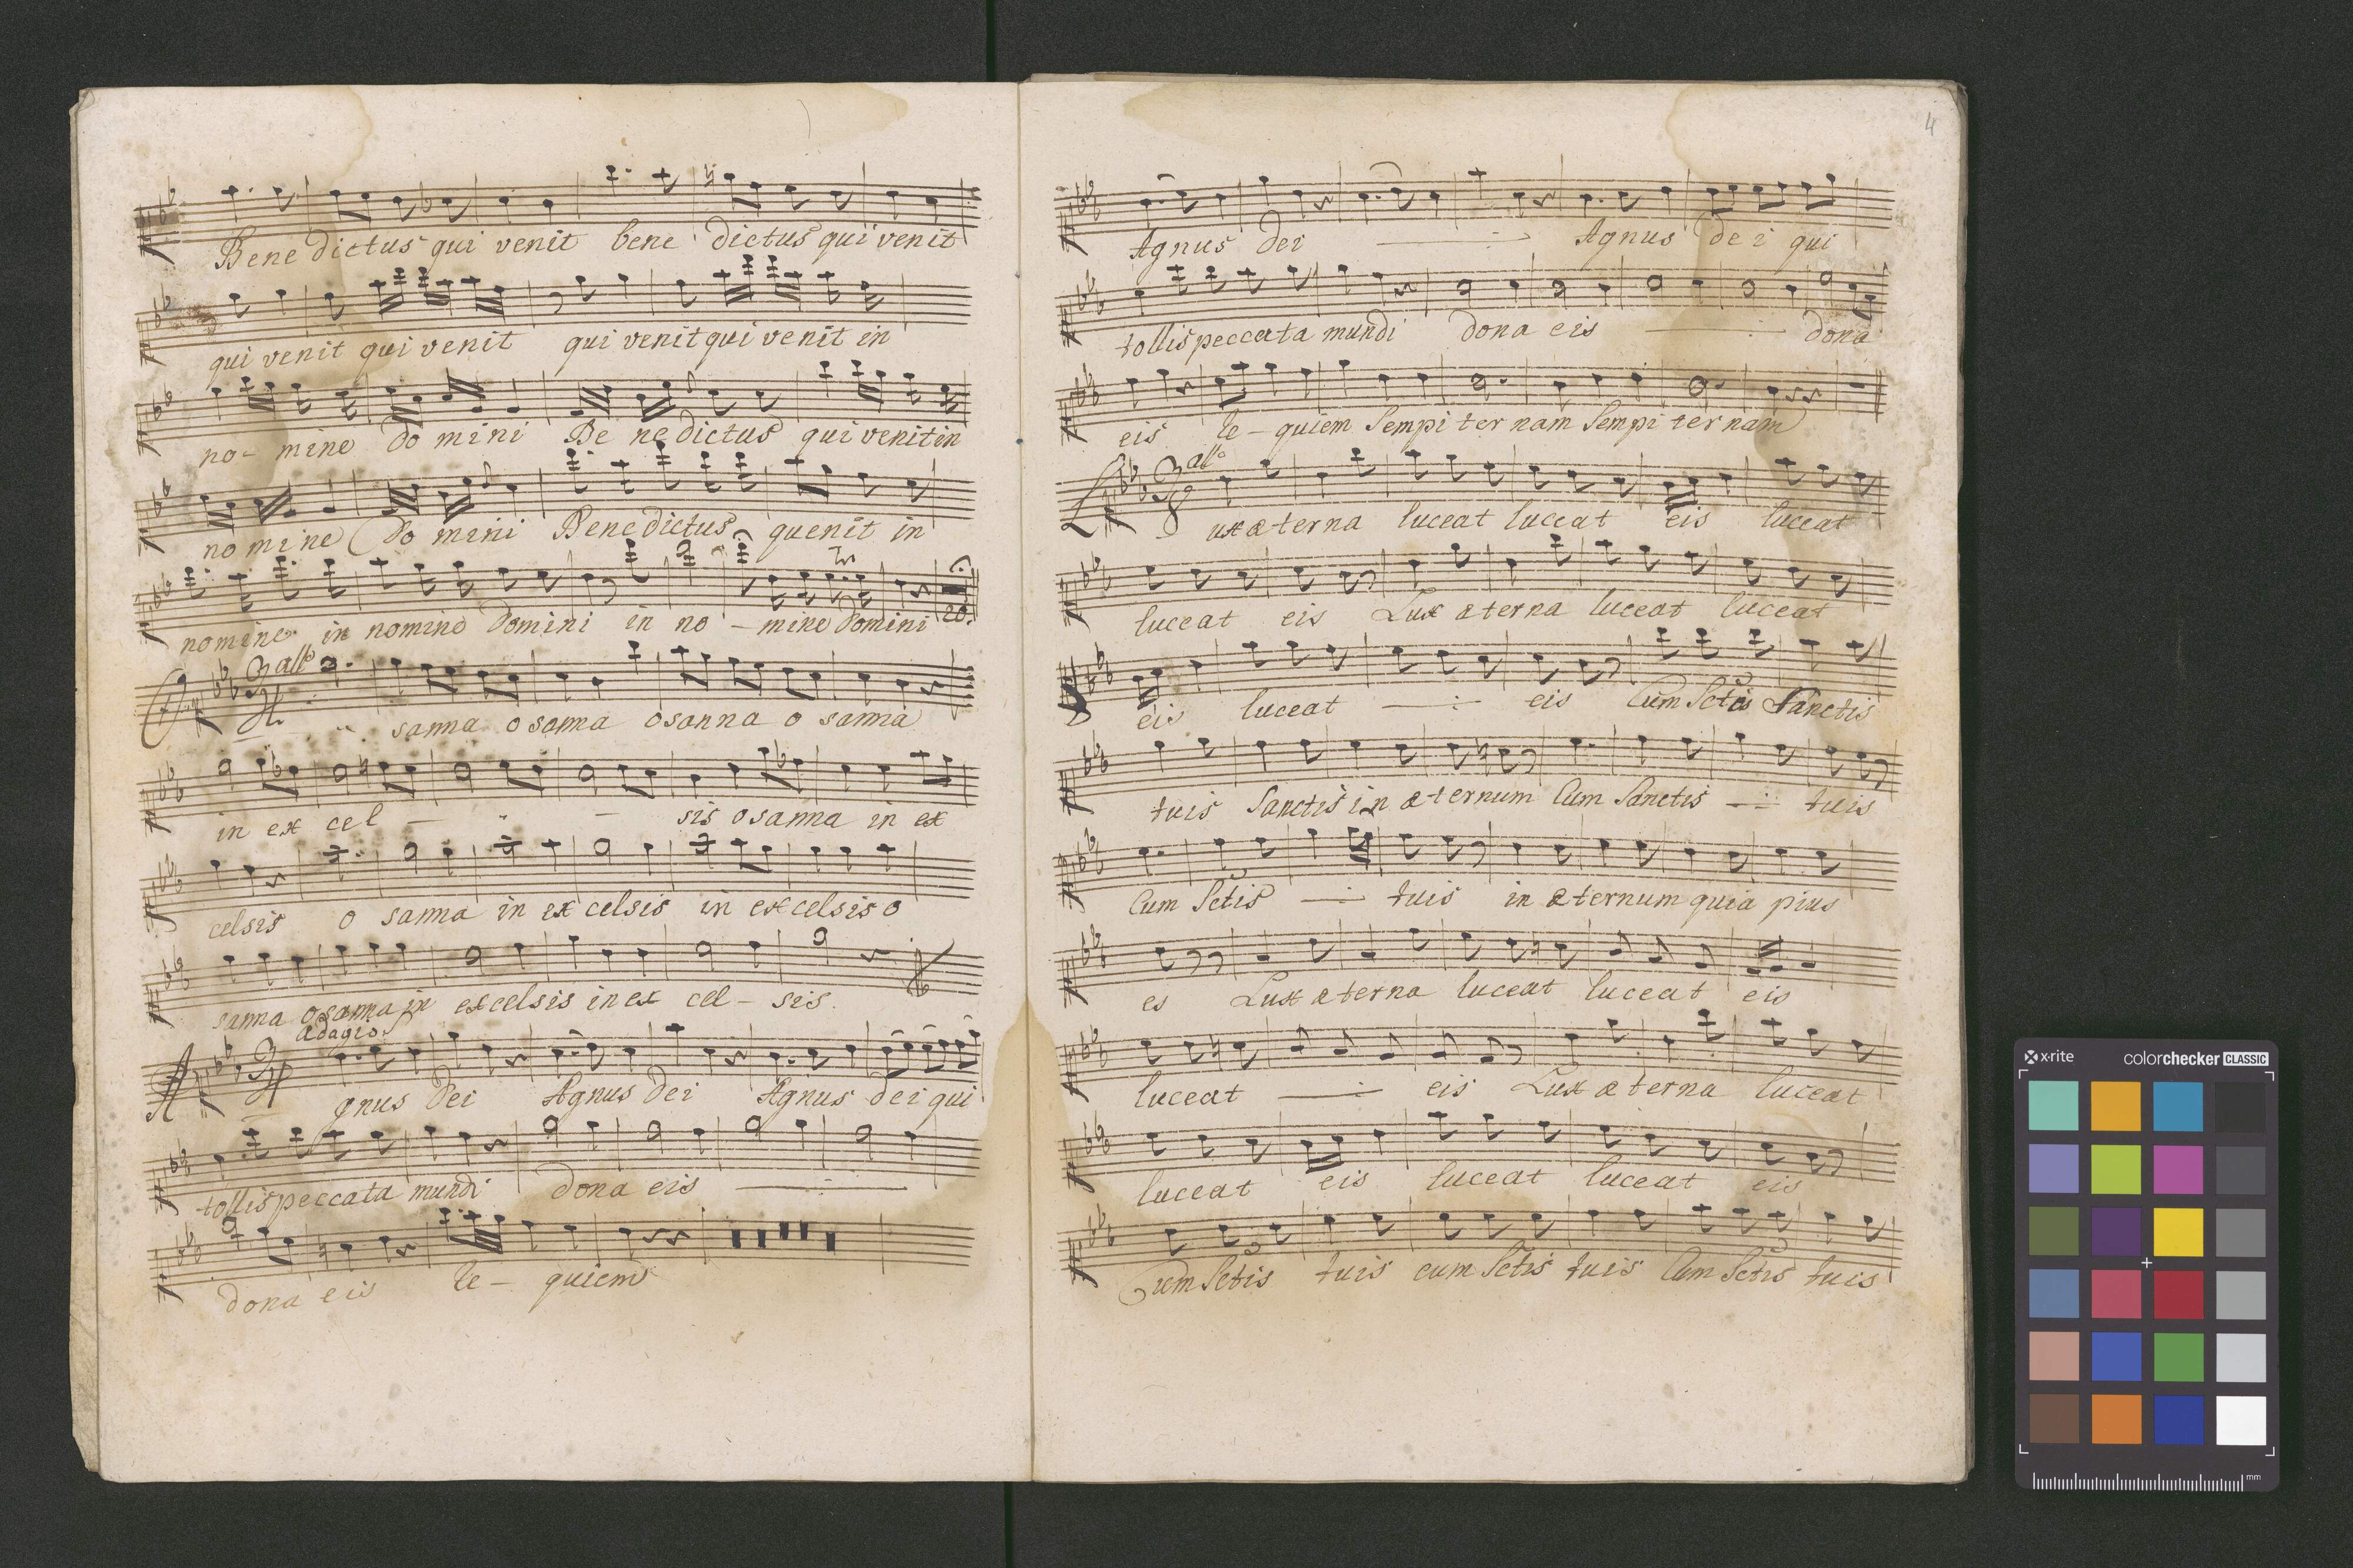 Bene dictus qui venit bene dictus qui venit
qui venit qui venit qui venit qui venit in
no - mine do mini Be ne dictus qui venit in
no mi ne Do mini Bene dictus quenit in
nomine in nomine Domini in no - mine Domini 20.
O 3/4 allo sanna o sanna osanna o sanna
in ex cel - - sis osanna in ex
celsis o sanna in ex celsis in excelsis o
sanna osanna in excelsis in ex cel - sis.
Adagio.
A 3/4 gnus Dei Agnus Dei Agnus dei qui
tollis peccata mundi dona eis
dona eis Re - quiem
4
Agnus Dei Agnus De i qui
tollis peccata mundi dona eis dona
eis Re - quiem Sempi ter nam Sempi ter nam
allo
L 3/8 ux æterna luceat luceat eis luceat
luceat eis Lux æterna luceat luceat
eis luceat eis Cum Sctis Sanctis
tuis Sanctis in æternum Cum Sanctis tuis
Cum Sctis tuis in æternum quia pius
es Lux æterna luceat luceat eis
luceat eis Lux æterna luceat
luceat eis luceat luceat eis
Cum Sctis tuis cum Sctis tuis Cum Sctis tuis
x-rite colorchecker CLASSIC
mm